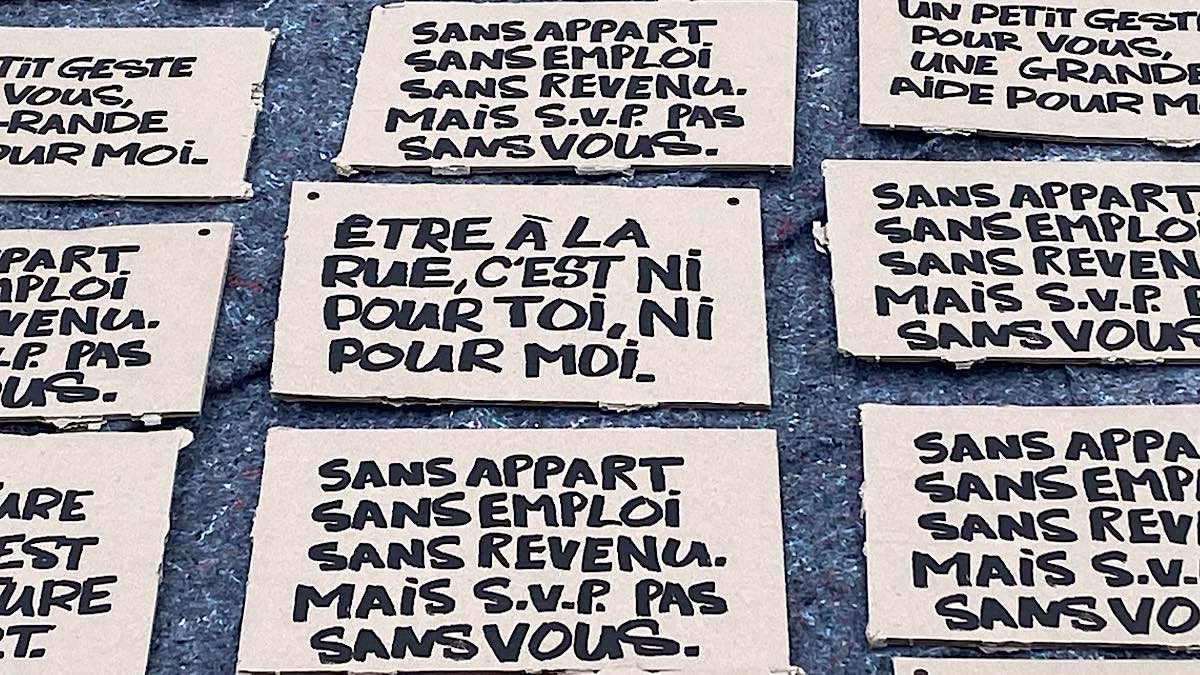 TIT GESTE
VOUS,
RANDE
POUR MOI.
SANS APPART
SANS EMPLOI
SANS REVENU.
MAIS S.V.P. PAS
SANS VOUS.
UN PETIT GESTE
POUR VOUS,
UNE GRANDE
AIDE POUR M
PART
EMPLOI
VENU.
V.P. PAS
OUS.
ÊTRE À LA
RUE, C'EST NI
POUR TOI, NI
POUR MOI.
SANS APPART
SANS EMPLOI
SANS REVEN
MAIS S.V.P.
SANS VOUS
URE
EST
TURE
RT.
SANS APPART
SANS EMPLOI
SANS REVENU.
MAIS S.V.P. PAS
SANS VOUS.
SANS APPA
SANS EMP
SANS REV
MAIS S.V.
SANS VO